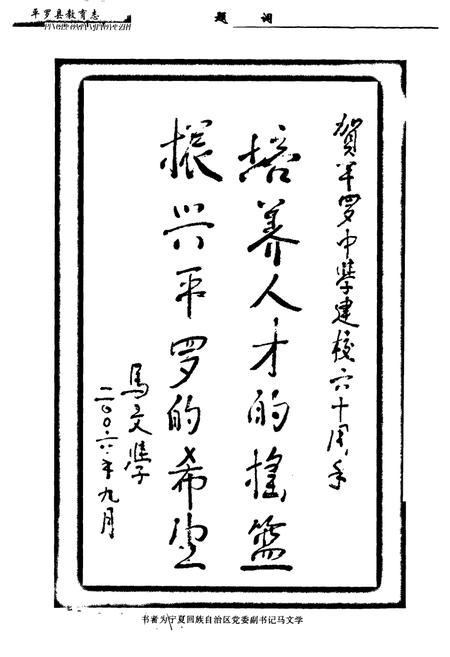 平罗县教育志
题 词
贺平罗中學建校六十周年
培养人才的摇篮
振兴平罗的希望
馬文學
二〇〇六年九月
书者为宁夏回族自治区党委副书记马文学